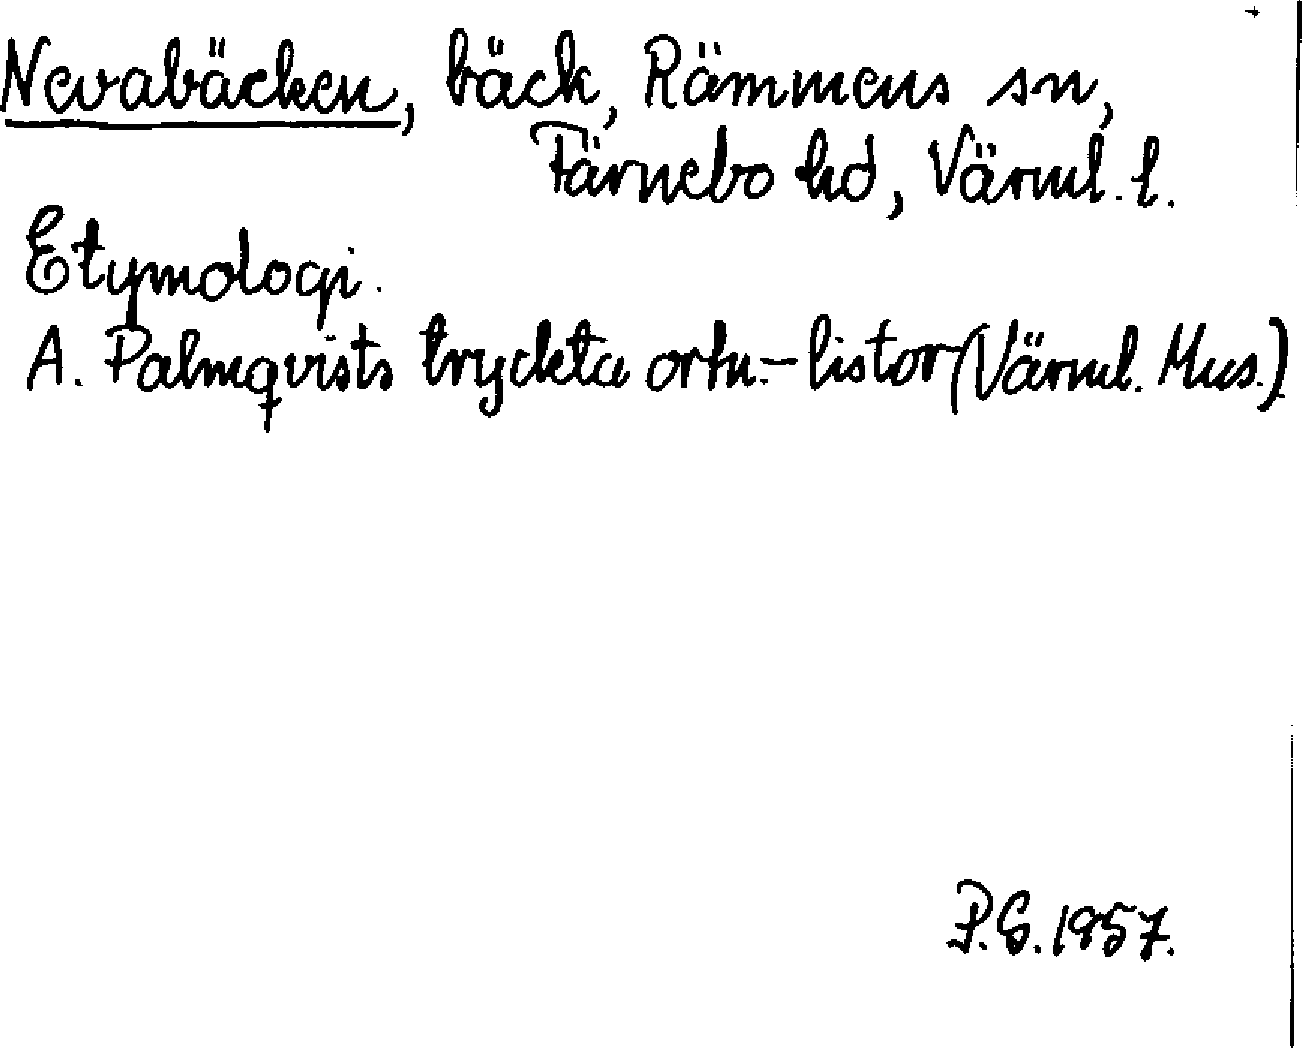 Nevabäcken, bäck, Rämmens sn,
Färnebo hd, Värml. l.
Etymologi.
A. Palmqvists tryckta ortn.-listor (Värml. Mus.)
P.G. 1957.